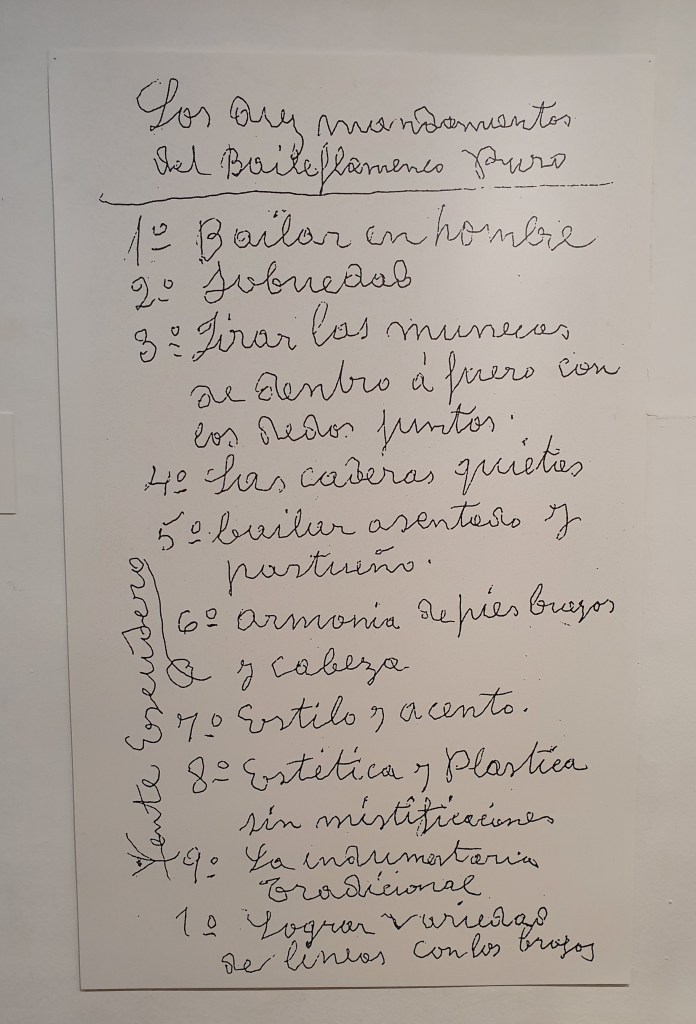 Los diez mandamientos
del Baile flamenco Puro
1º Bailar en hombre
2º Sobriedad
3º Jirar las munecas
de dentro á fuera con
los dedos juntos.
4º Las caderas quietas
5º bailar asentado y
pastueño.
6º armonia de pies brazos
y cabeza
7º Estilo y acento.
8º Estética y Plastica
sin mistificaciones
9º La indumentaria
tradicional
1º Lograr variedad
de lineas con los brazos
Vente Escudero